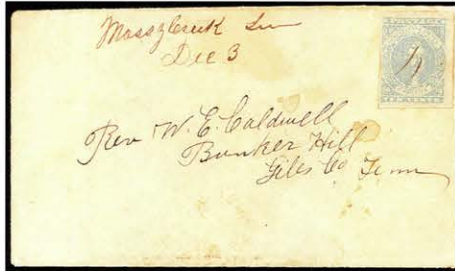 Mossy Creek Ten
Dec 3
Rev W. E. Caldwell
Bunker Hill
Giles Co Tenn
TEN CENTS